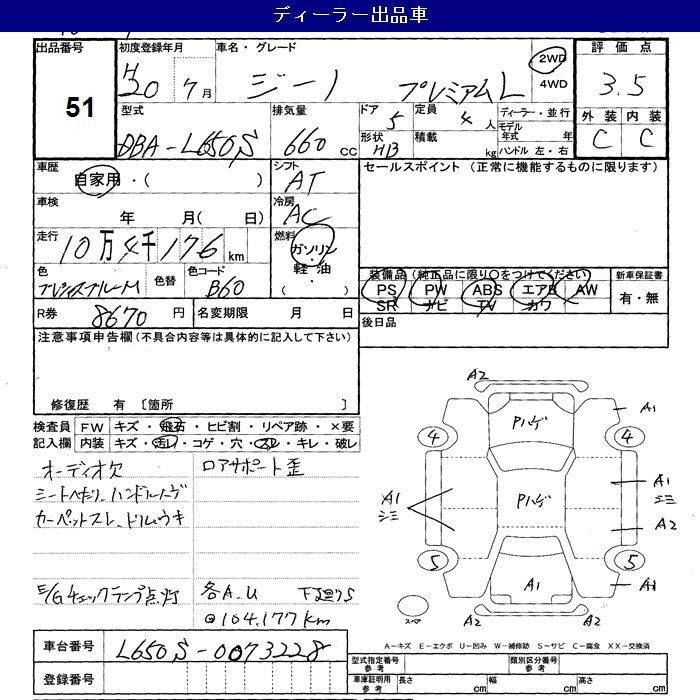 ディーラー出品車
出品番号 初度登録年月 車名・グレード 2WD 評価点
51
H20 7月 ジーノ プレミアムL 4WD 3.5
型式 排気量 ドア 定員 ディーラー・並行 外装 内装
DBA-L650S 660 cc 5 4人 モデル年式 年 C C
形状 HB 積載 kg ハンドル 左・右
車歴 シフト セールスポイント (正常に機能するものに限ります)
自家用・( ) AT
車検 冷房
年 月( 日) AC
走行 燃料
10万4千176 km ガソリン・軽油・( )
色 色替 色コード 装備品 (純正品に限り○をつけてください) 新車保証書
B60 PS PW ABS エアB AW 有・無
SR ナビ TV カワ
R券 8670 円 名変期限 月 日 後日品
注意事項申告欄 (不具合内容等は具体的に記入して下さい)
修復歴 有 [箇所 ]
検査員 FW キズ・飛石・ヒビ割・リペア跡・×要
記入欄 内装 キズ・汚レ・コゲ・穴・スレ・キレ・破レ
オーディオ欠 ロアサポート歪
シートヘタリ、ハンドル
カーペットスレ、ドリムウキ
E/Gチェックランプ点灯 各A.U 下廻りS
@104,177km
A2
Pハゲ A1
4 4
Pハゲ A1 エミ
A1 シミ A2
5 5
A1 A1
スペア A2 A2
A-キズ E-エクボ U-凹み W-補修跡 S-サビ C-腐食 XX-交換済
車台番号 L650S-0073228
登録番号
型式指定番号 参考 類別区分番号 参考
車庫証明用 参考 長さ cm 幅 cm 高さ cm